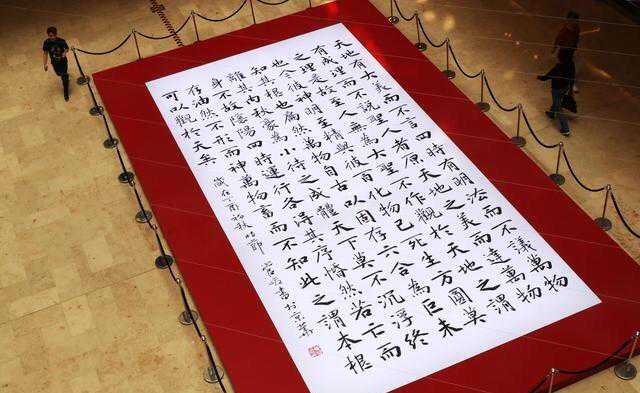 天地有大美而不言四時有明法而不議萬物
有成理而不說聖人者原天地之美而達萬物
之理是故至人無為大聖不作觀於天地之謂
也今彼神明至精與彼百化物已死生方圓莫
知其根也扁然萬物自古以固存六合為巨未
離其內秋豪為小待之成體天下莫不沉浮終
身不故陰陽四時運行各得其序惛然若亡而
存油然不形而神萬物畜而不知此之謂本根
可以觀於天矣 歲在丁酉初秋 書於京華